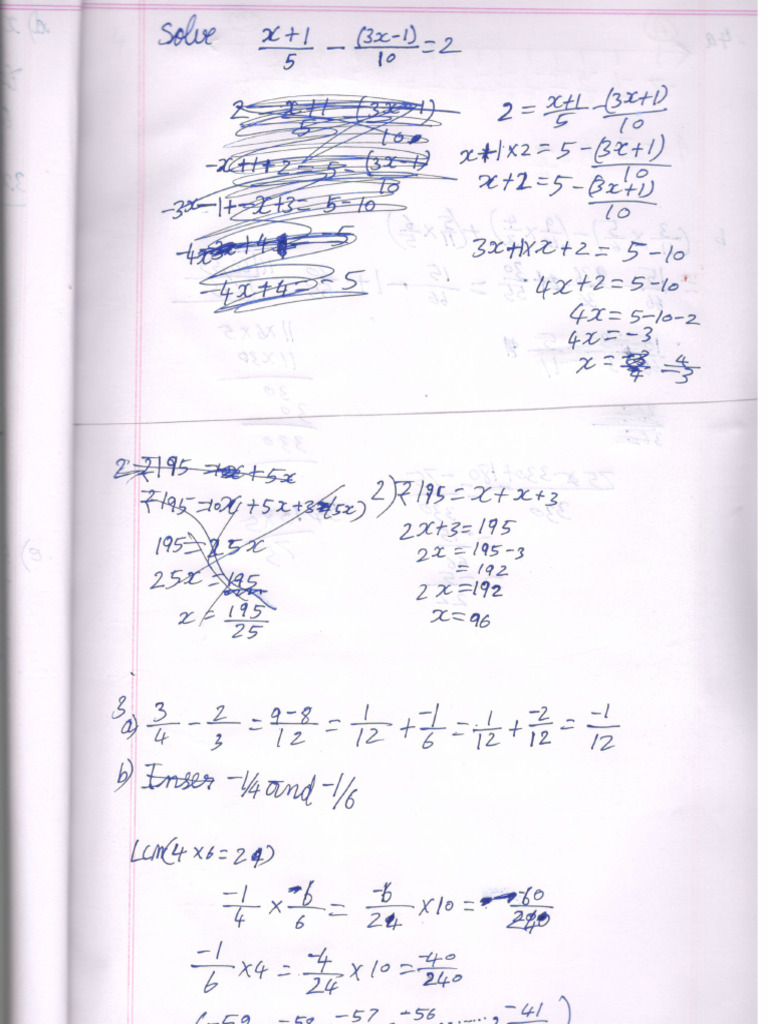 Solve (x+1)/5 - (3x-1)/10 = 2
2 = (x+1)/5 - (3x+1)/10
x+1×2 = 5 - (3x+1)/10
x+2 = 5 - (3x+1)/10
3x+1×x+2 = 5-10
4x+2 = 5-10
4x = 5-10-2
4x = -3
x = 4/-3
2 (x+1)/5 (3x-1)/10
-x+1+2 = 5 - (3x-1)/10
-3x-1+-x+3 = 5-10
-4x+4 = -5
7195 = 10x+5x+3 (5x)
195 = 25x
25x = 195
x = 195/25
2) 7195 = x+x+3
2x+3 = 195
2x = 195-3
= 192
2x = 192
x = 96
3
a) 3/4 - 2/3 = (9-8)/12 = 1/12 + -1/6 = 1/12 + -2/12 = -1/12
b) Inser -1/4 and -1/6
Lcm(4×6=24)
-1/4 × 6/6 = -6/24 × 10 = -60/240
-1/6 ×4 = -4/24 × 10 = -40/240
-59 -58 -57 -56 ......, -41